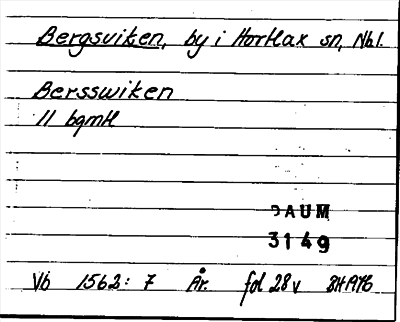 Bergsviken, by i Hortlax sn, Nbl.
Bersswiken
11 bgmtl
DAUM
3149
Vb 1562: 7 År. fol 28 v BH 1976